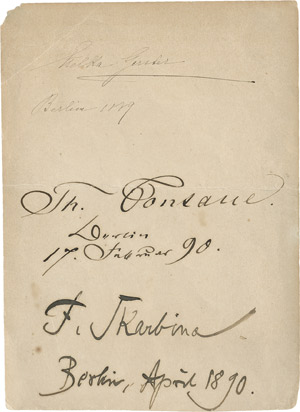 Berlin 1889
Th. Fontane.
Berlin
17. Februar 90.
F. Skarbina
Berlin, April 1890.